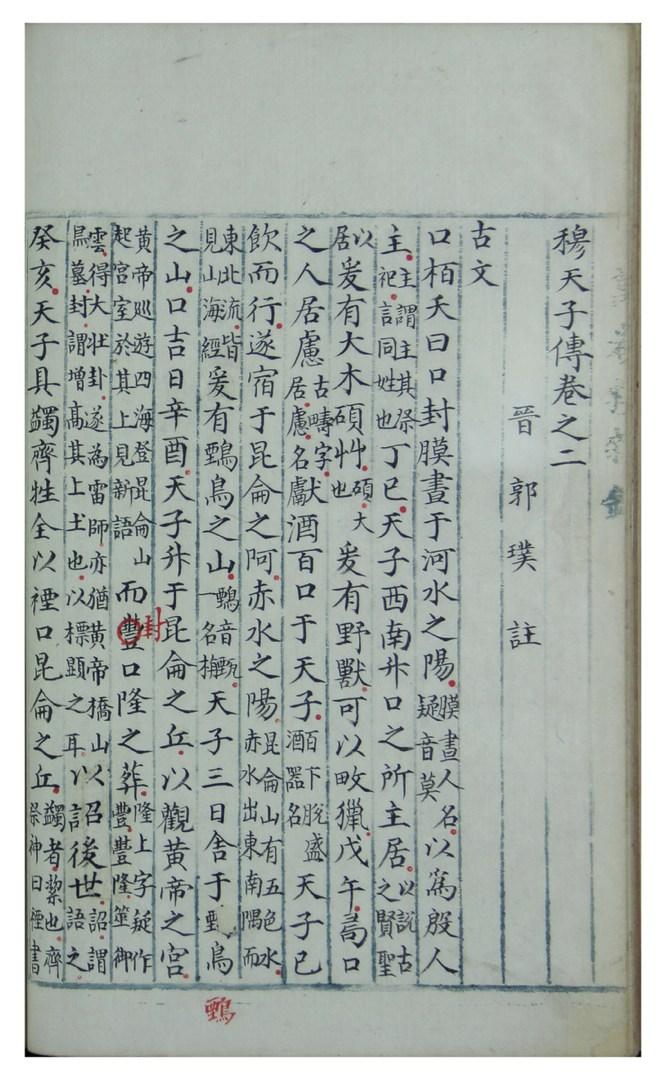 穆天子傳卷之二
晉郭璞註
古文
口栢夭曰口封膜晝于河水之陽膜晝人名疑音莫以爲殷人
主主謂主其祭祀言同姓也丁巳天子西南升口之所主居以說古之賢聖
以居爰有大木碩艸碩大也爰有野獸可以畋獵戊午𠷎口
之人居慮古疇字居慮名獻酒百口于天子百下脫盛酒器名天子已
飲而行遂宿于昆侖之阿赤水之陽昆侖山有五色水赤水出東南隅而
東北流皆見山海經爰有鶽鳥之山鶽音甄一名樹天子三日舍于鶽鳥
之山口吉日辛酉天子升于昆侖之丘以觀黃帝之宮
黃帝巡游四海登昆侖山起宮室於其上見新語而豐口隆之葬隆上字疑作豐豐隆筮御
封
雲得大壯卦遂為雷師亦猶黃帝橋山鳥墓封謂增高其上土也以標顯之耳以詔後世詔謂語之
癸亥天子具蠲齊牲全以禋口昆侖之丘蠲者絜也齊祭神曰禋書
鶽